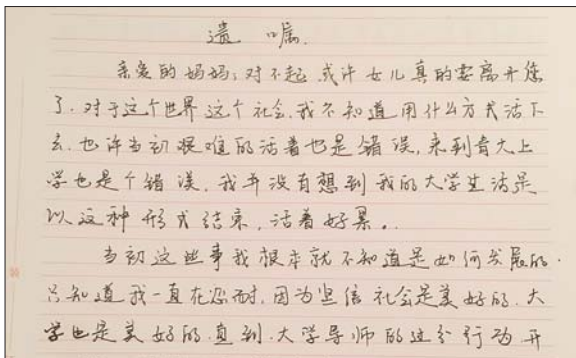 遗 嘱.
亲爱的妈妈:对不起,或许女儿真的要离开您
了.对于这个世界这个社会,我不知道用什么方式活下
去.也许当初艰难的活着也是错误,来到青大上
学也是个错误,我并没有想到我的大学生活是
以这种形式结束,活着好累。.
当初这些事我根本就不知道是如何发展的.
只知道我一直在忍耐,因为坚信社会是美好的.大
学也是美好的.直到.大学导师的这个行为开